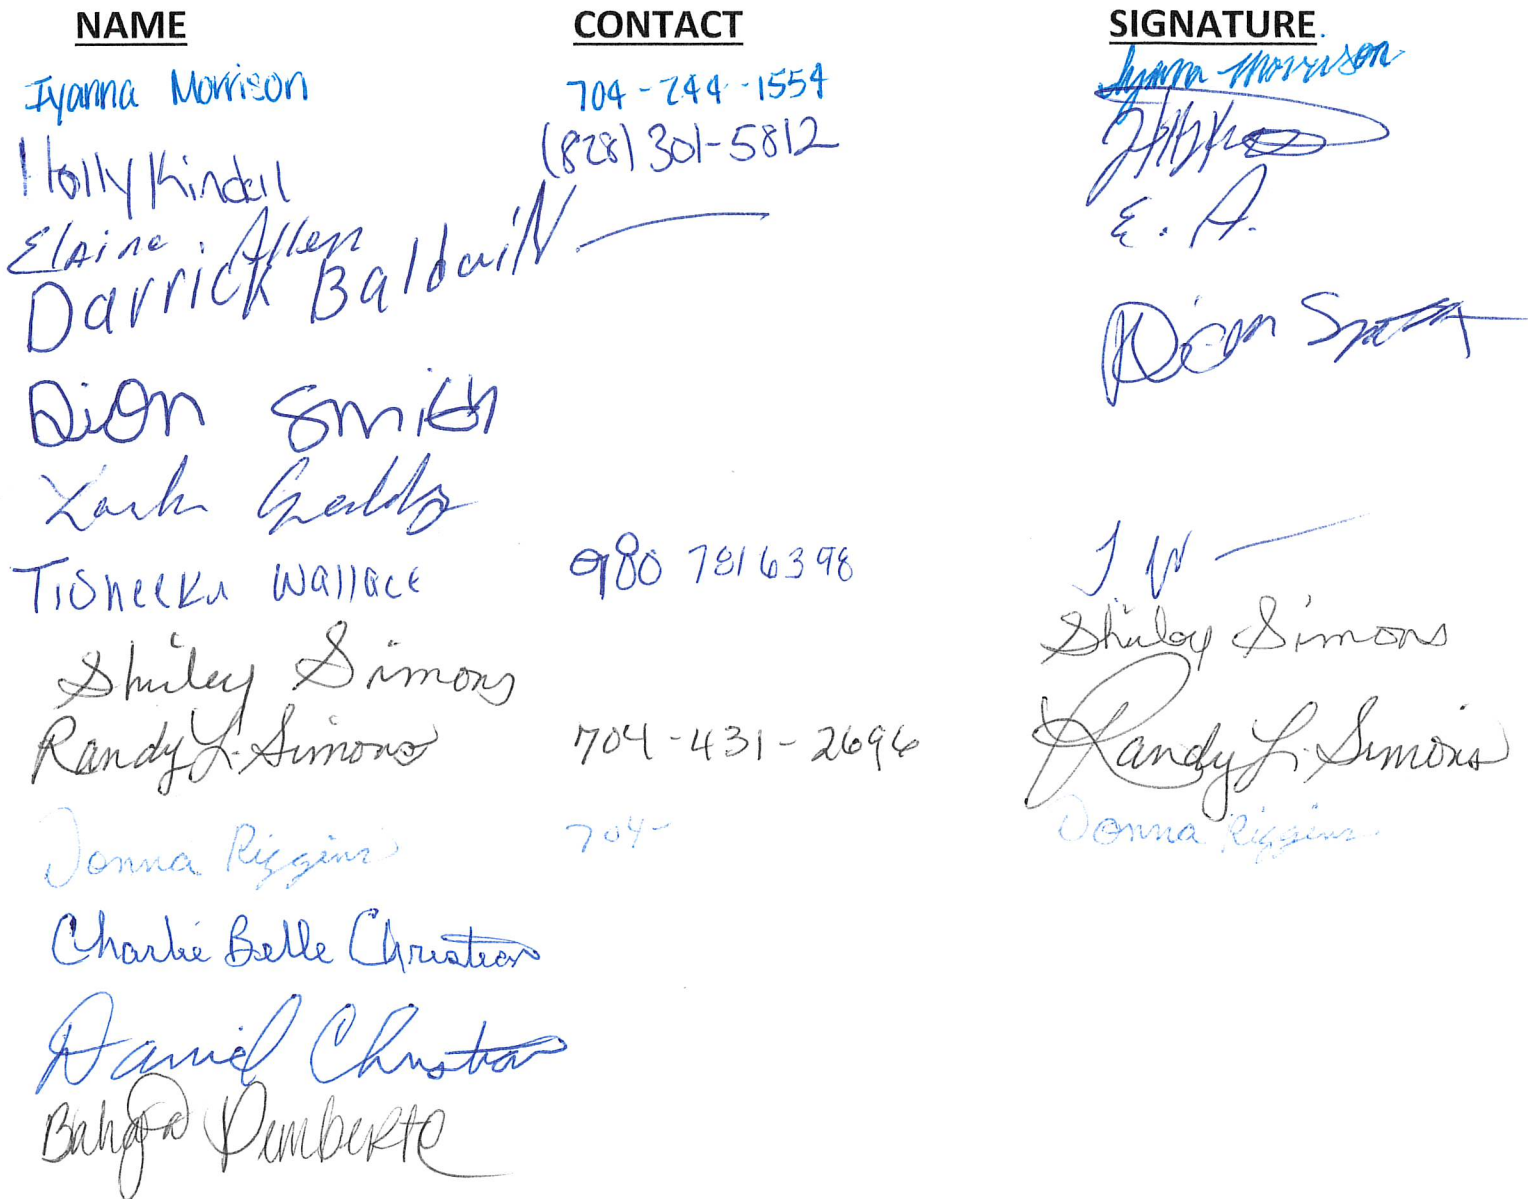 NAME CONTACT SIGNATURE
Iyanna Morrison 704-244-1554 Iyanna Morrison
Holly Kindall (828)301-5812
Elaine Allen E. A.
Darrick Baldwin
Dion Smith Dion
Tisheeka Wallace 980 7816398 T W
Shirley Simons Shirley Simons
Randy L. Simons 704-431-2696 Randy L. Simons
Donna Riggins 704- Donna Riggins
Charlie Belle Christian
Daniel Christian